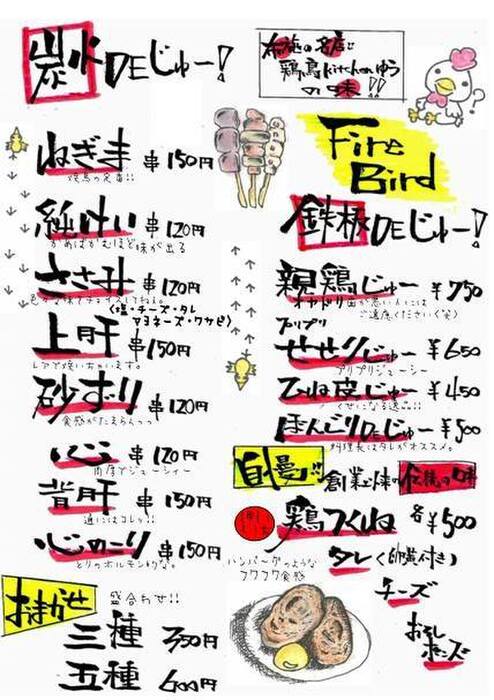 炭火DEじゅー!
ねぎま 串150円
焼鳥の定番!!
純けい 串120円
かめばかむほど味が出る
ささ身 串120円
(塩・チーズ・タレ
マヨネーズ・ワサビ)
上肝 串150円
レアで焼いちゃいます。
砂ずり 串120円
食感がたまらんっっ
心 串120円
肉厚でジューシィー
背肝 串150円
通にはコレッ!!
心のこり 串150円
とりのホルモン的な。
おまかせ 盛合わせ!!
三種 350円
五種 600円
の名店
鶏鳥kitchenゆう
の味!!
Fire
Bird
鉄板DEじゅー!
親鶏じゅー ¥750
オヤドリ歯が悪い人には
ご遠慮ください(笑)
プリプリ
せせりじゅー ¥650
プリプリジューシー
ひね皮じゅー ¥450
くせになる逸品!!
ぼんじりDEじゅー ¥500
料理長はタレがオススメ。
自慢!! 創業以来の伝統の味
鶏つくね 各¥500
ハンバーグのような
フワフワ食感
タレ(卵黄付き)
チーズ
おろし
ポンズ